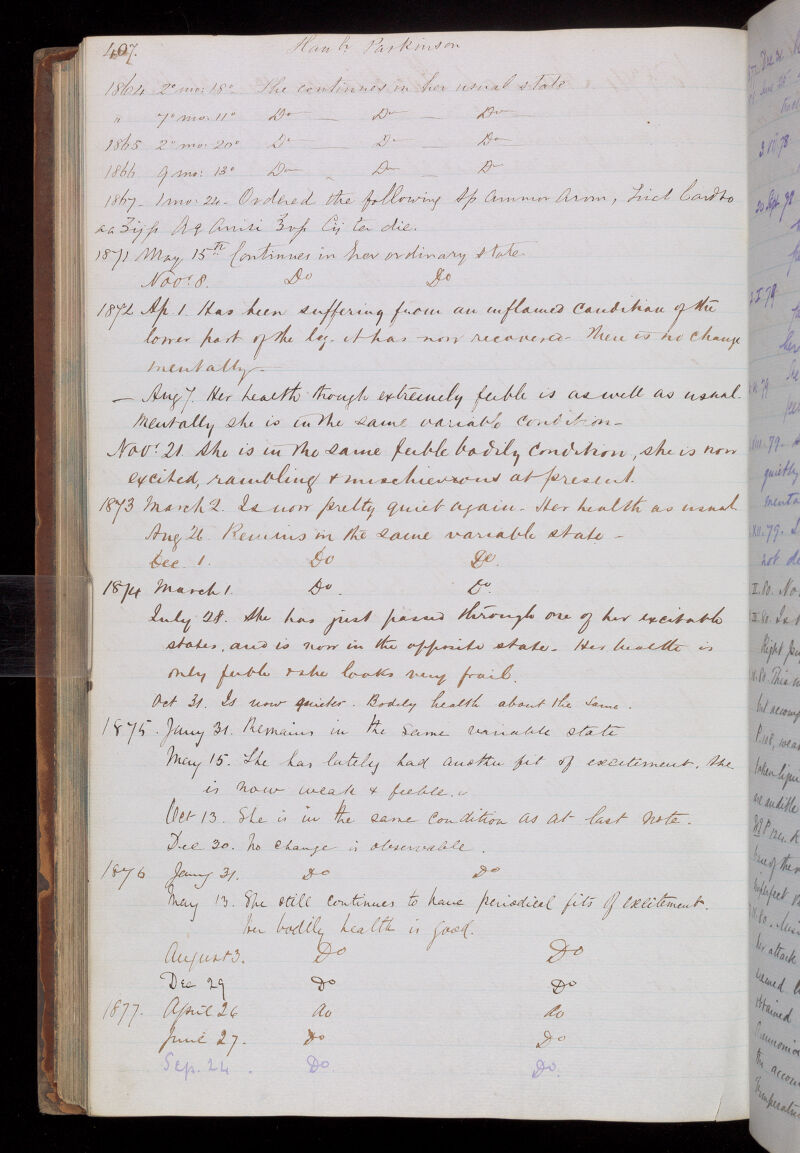 407.
Hanh Parkinson
1864 2° mo: 18° She continues in her usual state
" 7° mo: 11° Do — Do — Do
1865 2° mo: 20° Do — Do — Do
1866 9 mo: 13° Do — Do — Do
1867 - 1 mo: 24 - Ordered the following Sp Ammon Arom, Tinct Cardo
aa ʒijfs Aq Anisi ℥vfs Cij ter die.
1871 May 15th Continues in her ordinary state
Novr 8. Do Do
1872 Ap. 1. Has been suffering from an inflamed condition of the
lower part of the leg. it has now recovered - There is no change
mentally —
— Aug 7. Her health though extremely feeble is as well as usual.
Mentally she is in the same variable condition -
Novr 21 She is in the same feeble bodily condition, she is now
excited, rambling & mischievous at present.
1873 March 2. Is now pretty quiet again - Her health as usual
Aug 26. Remains in the same variable state -
Dec. 1. Do Do.
1874 March 1. Do. Do.
July 28. She has just passed through one of her excitable
states, and is now in the opposite state - Her health is
only feeble & she looks very frail.
Oct 31. Is now quieter. Bodily health about the same.
1875. Jany 31. Remains in the same variable state
May 15. She has lately had another fit of excitement. She
is now weak & feeble.
Oct 13. She is in the same condition as at last note.
Dec 30. No change is observable.
1876 Jany 31. Do Do
May 13. She still continues to have periodical fits of excitement.
Her bodily health is good.
August 3. Do Do
Dec 29 Do Do
1877. April 26 do do
June 27. Do Do
Sep. 24. Do. Do.
3.VII.78
20 Sept. 78
2.I.79
her
quietly
menta
XII.79.
not
I.80. No
Right
This
but
weak
audible
imperfect
her attack
obtained
the
Temperature